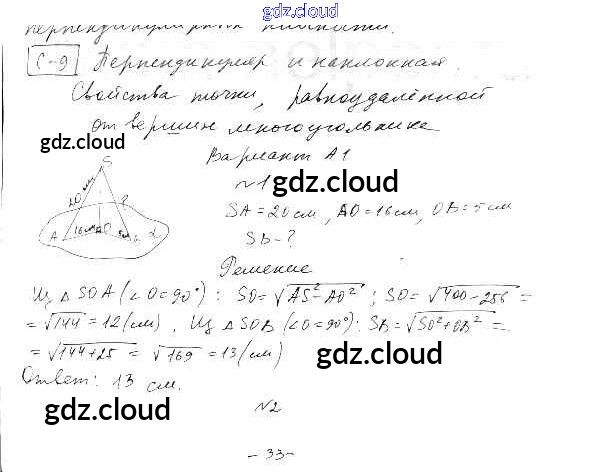 gdz.cloud
перпендикулярна плоскости.
С-9 Перпендикуляр и наклонная.
Свойства точки, равноудалённой
от вершин многоугольника
gdz.cloud
Вариант А1
№1
gdz.cloud
S
20 см
?
A 16см O 5см B α
SA = 20 см, AO = 16 см, OB = 5 см
SB - ?
Решение
Из △ SOA (∠O = 90°) : SO = √AS² - AO² ; SO = √400 - 256 =
= √144 = 12 (см) , Из △ SOB (∠O = 90°) : SB = √SO² + OB² =
= √144 + 25 = √169 = 13 (см)
gdz.cloud
Ответ: 13 см.
gdz.cloud
№2
gdz.cloud
- 33 -